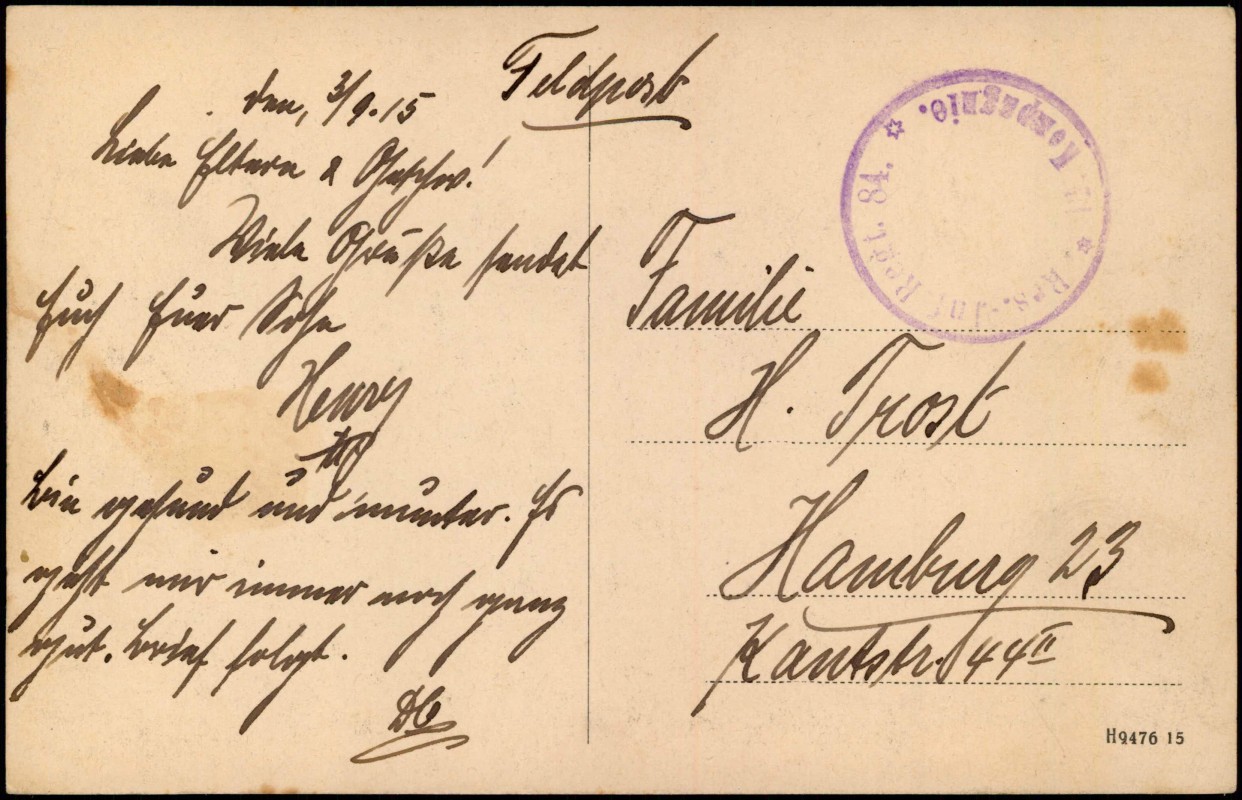 Feldpost
den, 3/9.15
Liebe Eltern & Geschw.!
Viele Grüße sendet
Euch Euer Sohn
Henry
Bin gesund und munter. Es
geht mir immer noch ganz
gut. Brief folgt.
Kompagnie.
Res.-Inf. Regt. 84.
Familie
H. Trost
Hamburg 23
Kantstr. 44 II
H9476 15